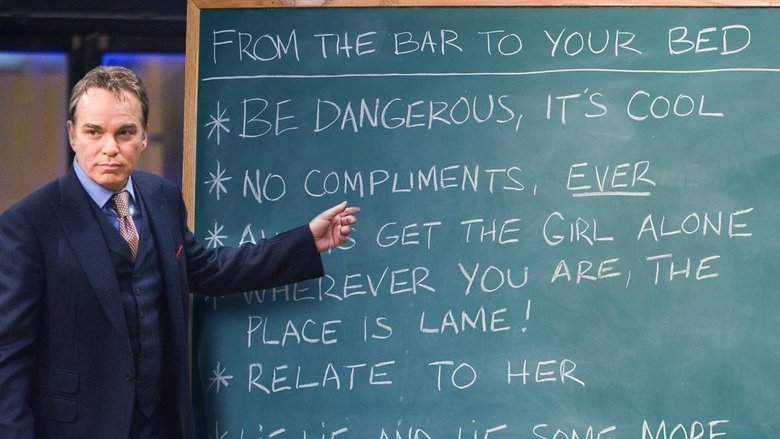 FROM THE BAR TO YOUR BED
* BE DANGEROUS, IT'S COOL
* NO COMPLIMENTS, EVER
* GET THE GIRL ALONE
* WHEREVER YOU ARE, THE
PLACE IS LAME!
* RELATE TO HER
LIE LIE AND LIE SOME MORE